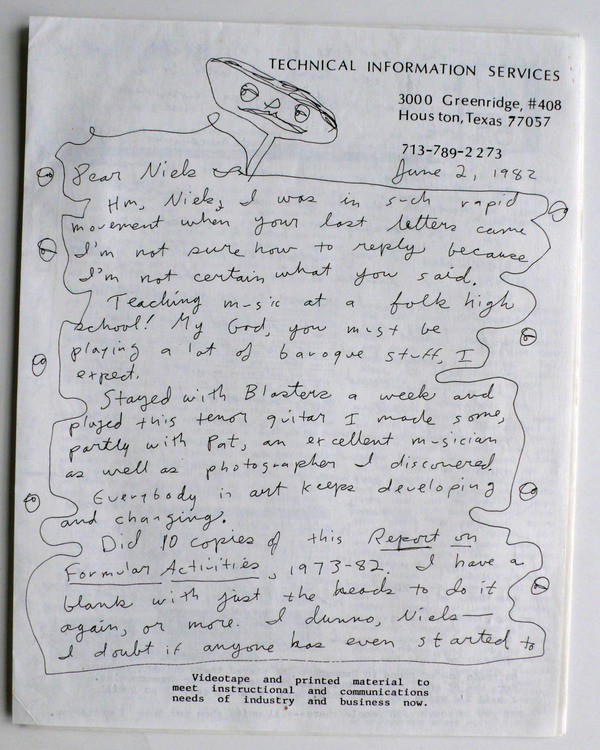 TECHNICAL INFORMATION SERVICES
3000 Greenridge, #408
Houston, Texas 77057
713-789-2273
June 2, 1982
Dear Niels
Hm, Niels, I was in such rapid
movement when your last letters came
I'm not sure how to reply because
I'm not certain what you said.
Teaching music at a folk high
school! My God, you must be
playing a lot of baroque stuff, I
expect.
Stayed with Blasters a week and
played this tenor guitar I made some,
partly with Pat, an excellent musician
as well as photographer I discovered.
Everybody in art keeps developing
and changing.
Did 10 copies of this Report on
Formular Activities, 1973-82. I have a
blank with just the heads to do it
again, or more. I dunno, Niels—
I doubt if anyone has even started to
Videotape and printed material to
meet instructional and communications
needs of industry and business now.